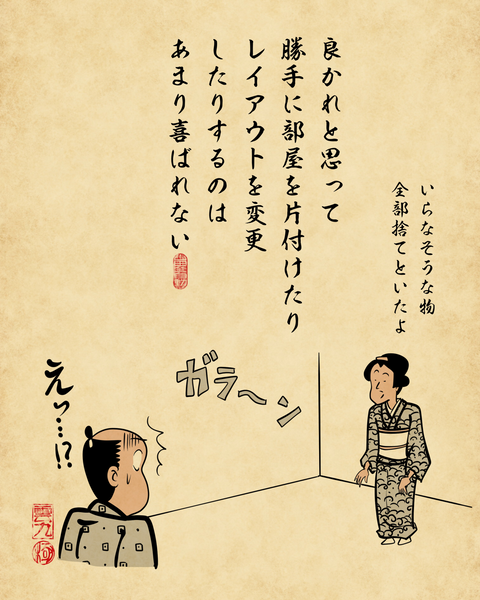 良かれと思って
勝手に部屋を片付けたり
レイアウトを変更
したりするのは
あまり喜ばれない
いらなそうな物
全部捨てといたよ
ガラ〜ン
えっ…!?